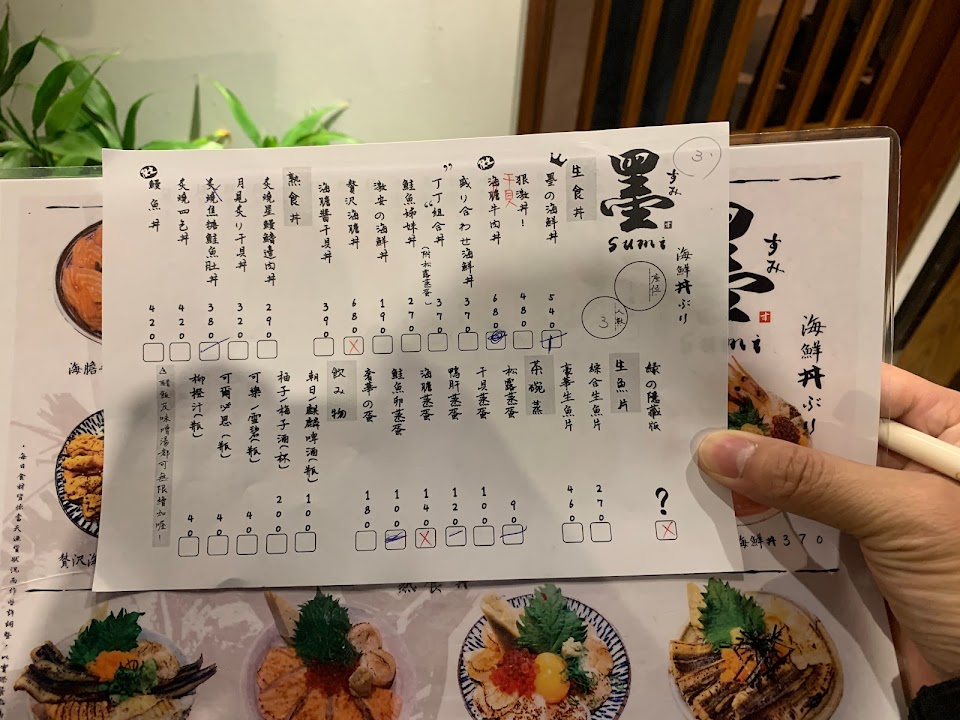 3
墨
すみ
sumi
海鮮丼ぶり
座位
人數
3
生食丼
墨の海鮮丼 540
狠激丼! 480
干貝
海膽牛肉丼 680
盛り合わせ海鮮丼 370
"丁丁組合丼"(附松露蒸蛋) 370
鮭魚姊妹丼 270
激安の海鮮丼 190
贅沢海膽丼 680 X
海膽醬干貝丼 390
熟食丼
炙燒星鰻鰭邊肉丼 290
月見炙り干貝丼 320
炙燒焦糖鮭魚肚丼 380
炙燒四色丼 420
鰻魚丼 420
緣の隱藏版 ? X
生魚片
綜合生魚片 270
豪華生魚片 460
茶碗蒸
松露蒸蛋 90
干貝蒸蛋 100
鴨肝蒸蛋 120
海膽蒸蛋 140 X
鮭魚卵蒸蛋 100
奢華の蛋 180
飲み物
朝日/麒麟啤酒(瓶) 100
柚子/梅子酒(杯) 200
可樂/雪碧(瓶) 40
可爾必思(瓶) 40
柳橙汁(瓶) 40
△醋飯及味噌湯都可無限增加喔!
すみ
海鮮丼ぶり
海鮮丼370
海膽
贅沢海